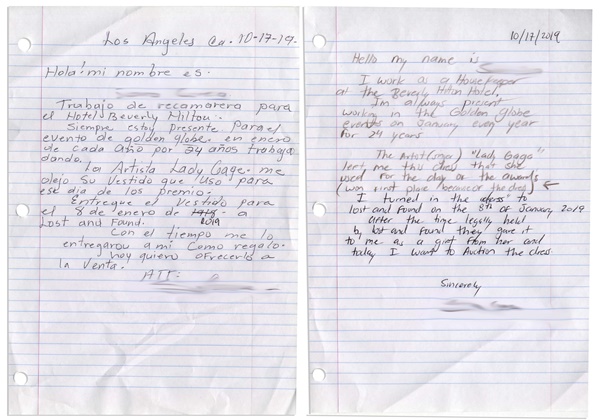 Los Angeles Ca. 10-17-19.
Hola! mi nombre es.
Trabajo de recamarera para
el Hotel Beverly Hilton.
Siempre estoy presente. Para el
evento de golden globe. en enero
de cada año por 24 años trabaja
dando.
La Artista Lady Gage. me
dejo Su Vestido que Uso para
ese dia de los premio.
Entregue el Vestido para
el 8 de enero de 2019 a
Lost and Found.
Con el tiempo me lo
entregarou a mi Como regalo.
hoy quiero ofrecerlo a
la Venta.
ATT:
10/17/2019
Hello my name is
I work as a Housekeeper
at the Beverly Hilton Hotel,
I'm always present
working in the Golden globe
events on January every year
for 24 years
The Artist (singer) "Lady Gaga"
left me this dress that she
used for the day of the awards
(won first place because of the dress)
I turned in the "dress" to
lost and found on the 8th of January 2019
after the time legally held
by lost and found they gave it
to me as a gift from her and
today I want to Auction the dress
Sincerely